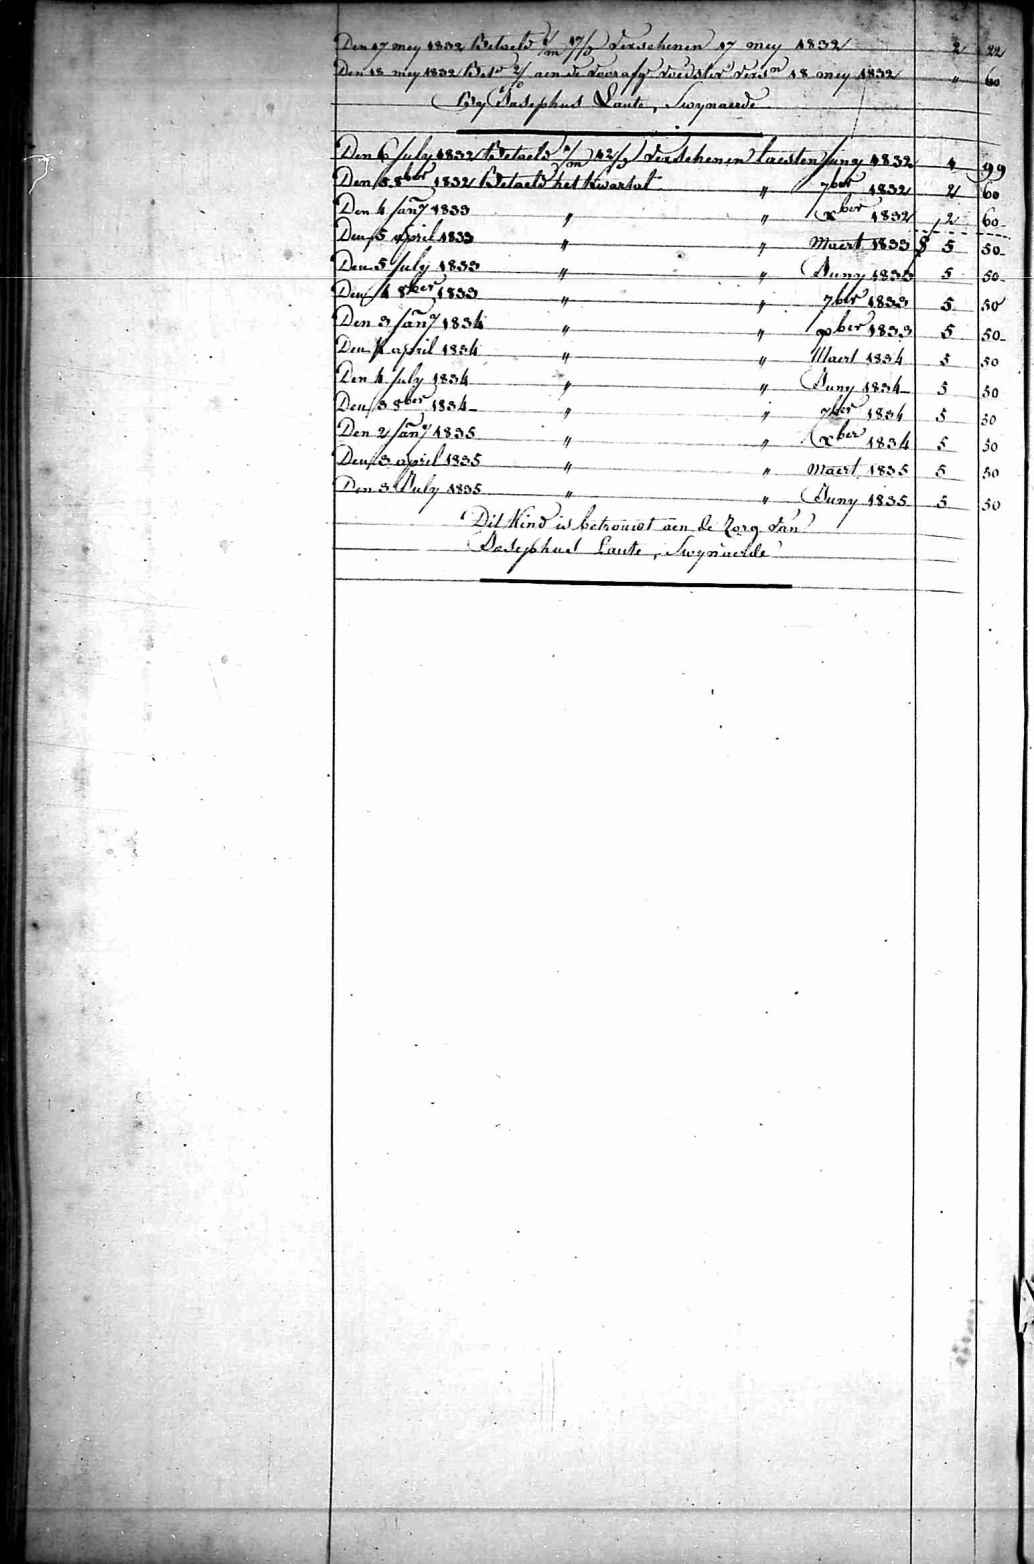 Den 17 mey 1832 Betaeld 1/m 17/d Verschenen 17 mey 1832 2 22
Den 18 mey 1832 Bet 2/ aen de voorafg Voedster Versn 18 mey 1832 " 60
By Josephus Laute, Swynaerde
Den 6 July 1832 Betaeld 1/m 12/d Verschenen laesten Juny 1832 1 99
Den 5 8ber 1832 Betaeld het Kwartal " 7ber 1832 2 60
Den 4 Jany 1833 " " Xber 1832 2 60
Den 5 april 1833 " " Maert 1833 5 50
Den 5 July 1833 " " Juny 1833 5 50
Den 4 8ber 1833 " " 7ber 1833 5 50
Den 3 Jany 1834 " " Xber 1833 5 50
Den 4 april 1834 " " Maert 1834 5 50
Den 4 July 1834 " " Juny 1834 5 50
Den 3 8ber 1834 " " 7ber 1834 5 50
Den 2 Jany 1835 " " Xber 1834 5 50
Den 3 april 1835 " " Maert 1835 5 50
Den 3 July 1835 " " Juny 1835 5 50
Dit Kind is betrouwt aen de Zorg van
Josephus Laute, Swynaerde